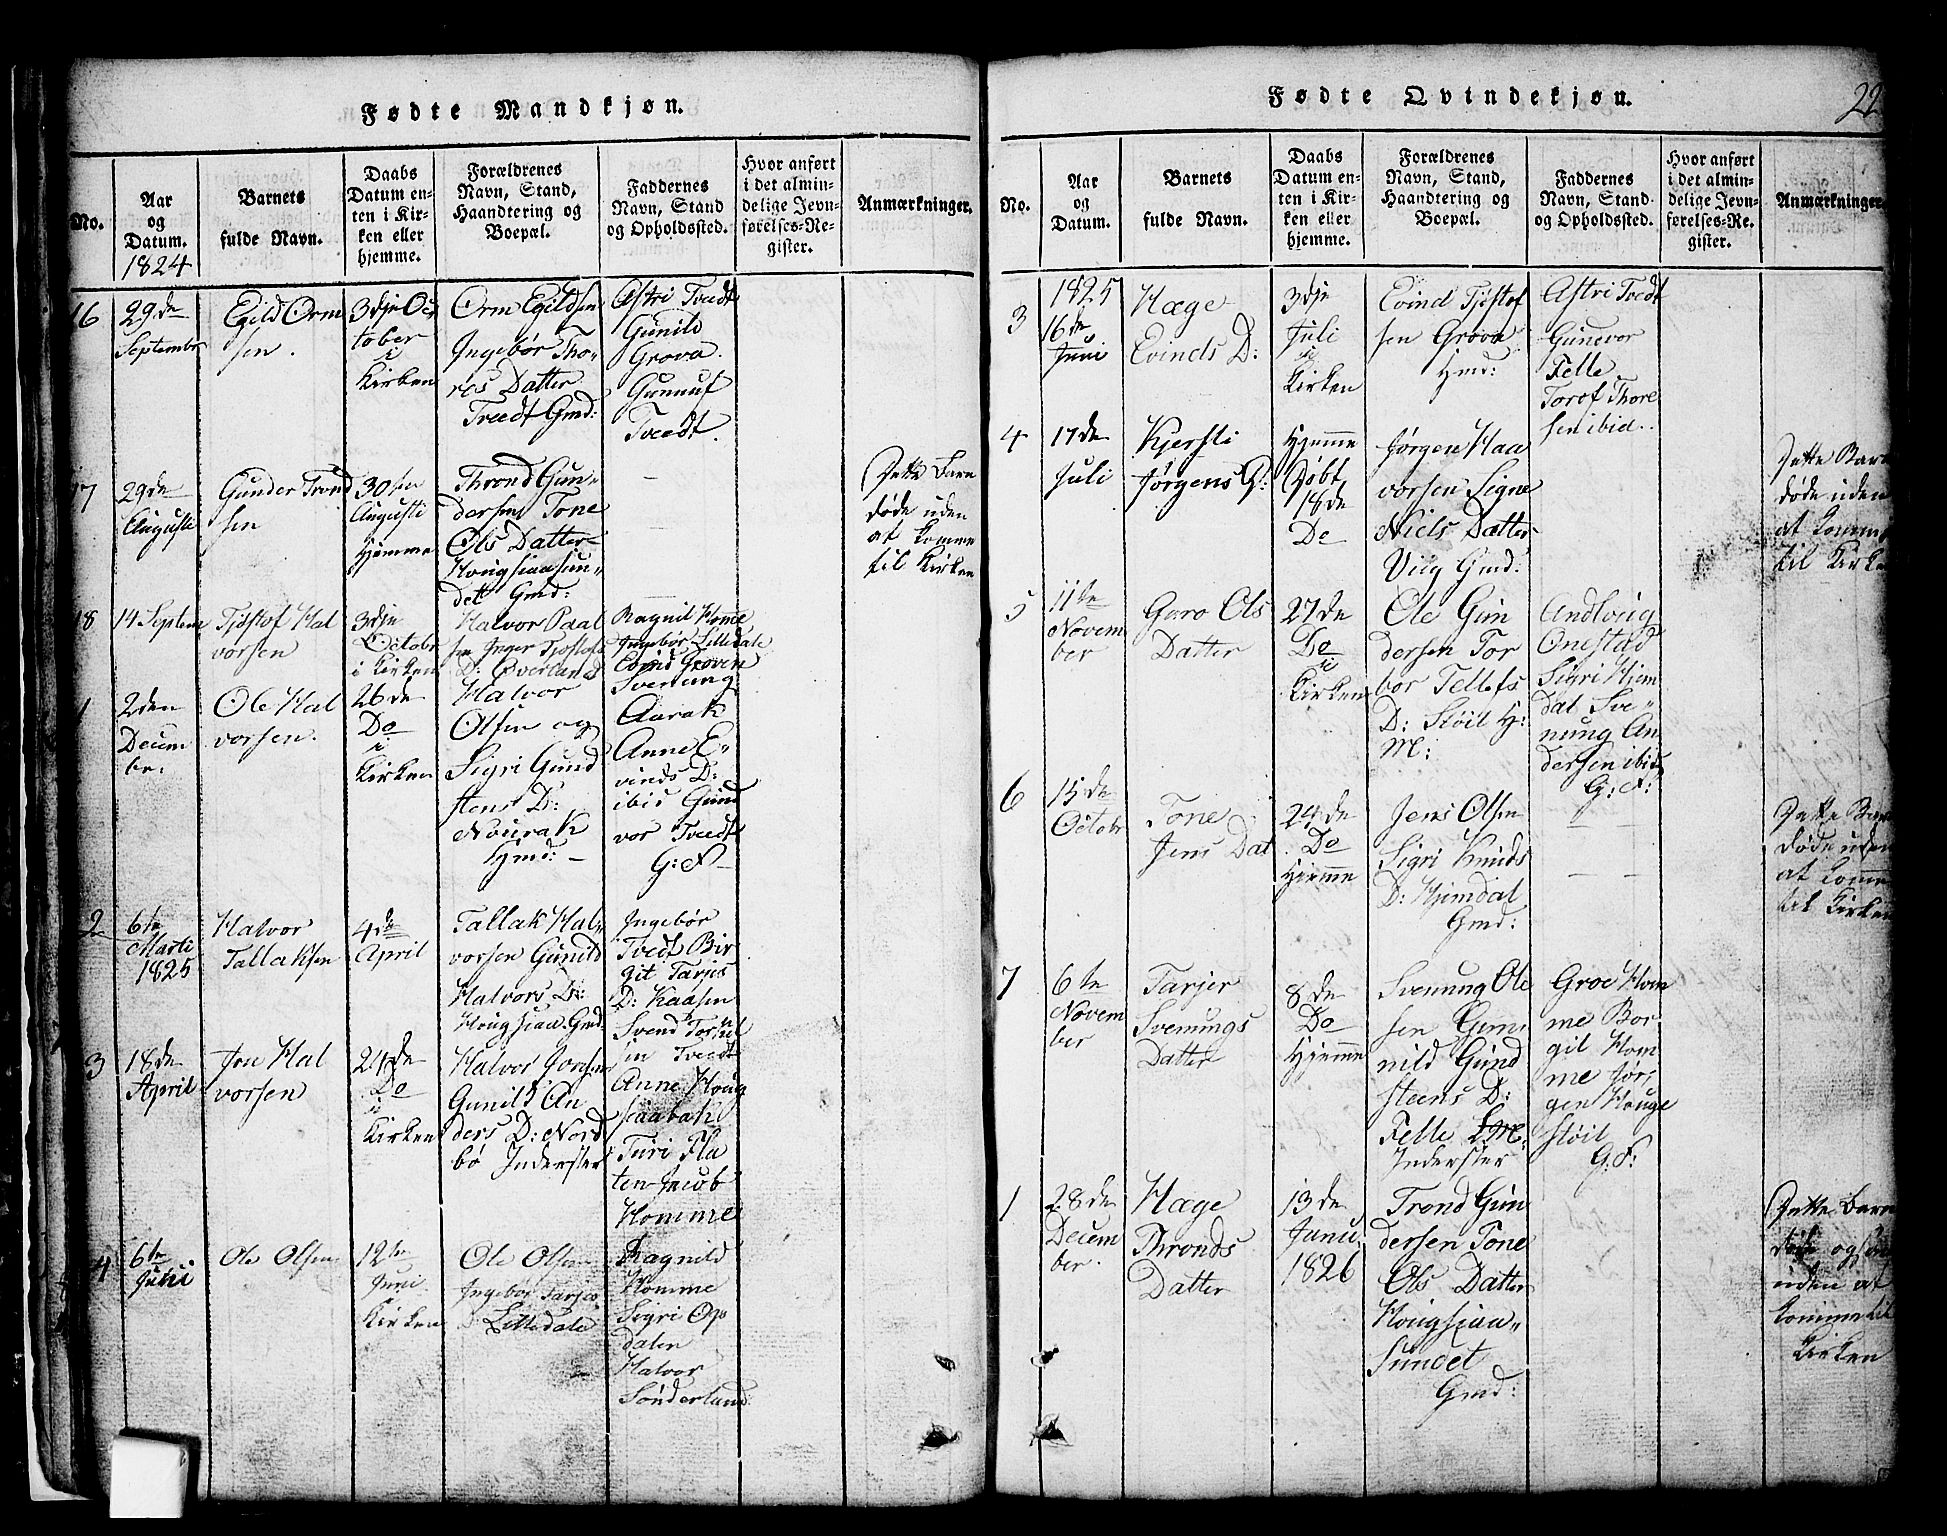 Fødte Mandkjøn.
No.
Aar
og
Datum.
1824
Barnets
fulde Navn.
Daabs
Datum en-
ten i Kir-
ken eller
hjemme.
Forældrenes
Navn, Stand,
Haandtering og
Boepæl.
Faddernes
Navn, Stand
og Opholdssted.
Hvor anført
i det almin-
delige Jevn-
førelses-Re-
gister.
Anmærkninger.
16
29de
Septembr
Egild Orm
sen.
3dje Oc
tober
i
Kirken
Orm Egildsen
Ingebør Tho-
res Datter
Tveedt Gmd:
Astri Tvedt
Gunild
Grova.
Gunnuf
Tveedt.
17
29de
Augusti
Gunder Trond
sen
30te
Augusti
Hjemme
Thrond Gun-
dersen Tone
Ols Datter
Hougsiaasun-
det Gmd:
Dette Barn
døde uden
at komme
til Kirken
18
14 Septem
Tjøstof Hal
vorsen
3dje
Octobr
i Kirken
Halvor Paal
sen Inger Tjøstofs
D: Øverland
Ragnil Homme
Ingebør Lilledale
Evind Groven
1
2den
Decem
ber
Ole Hal
vorsen.
26de
Do
i
Kirken
Halvor
Olsen og
Sigri Gund
stens D:
Nourak
Hmd: -
Svenung
Aarak
Anne E-
vinds D:
ibid Gun
vor Tvedt
G: F
2
6te
Marti
1825
Halvor
Tallaksen
4de
April
Tallak Hal-
vorsen Gunild
Halvors D:
Hougsiaa Gmd
Ingebør
Tvedt Bir
git Tarjes
D: Kaasen
Svend Torsul
sen Tvedt
3
18de
April
Jon Hal
vorsen
24de
Do
i
Kirken
Halvor Jonsen
Gunild An
ders D: Nord
bø Inderster
Anne Houg
siaabak
Turi Fla
ten Jacob
Homme
4
6te
Juni
Ole Olsen
12te
Juni
i
Kirken
Ole Olsen
Ingebør Tarjes
D: Lilledale
Ragnild
Homme
Sigri Op
dalen
Halvor
Sønderland
Fødte Qvindekjøn.
22
No.
Aar
og
Datum.
Barnets
fulde Navn.
Daabs
Datum en-
ten i Kir-
ken eller
hjemme.
Forældrenes
Navn, Stand,
Haandtering og
Boepæl.
Faddernes
Navn, Stand
og Opholdssted.
Hvor anført
i det almin-
delige Jevn-
førelses-Re-
gister.
Anmærkninger.
3
1825
16de
Juni
Hæge
Evinds D:
3dje
Juli
i
Kirken
Evind Tjøstof
sen Grova
Hmd:
Astri Tvedt
Gunevor
Felle
Torof Thore
sen ibid.
4
17de
Juli
Kjersti
Jørgens D:
Hjemme
Døbt
18de
Do
Jørgen Haa
vorsen Signe
Niels Datter
Viig Gmd:
Dette Barn
døde uden
at komme
til Kirken
5
11te
Novem
ber
Goro Ols
Datter
27de
Do
i
Kirken
Ole Gun
dersen Tor
bor Tellefs
D: Støil H:
M:
Andloug
Onestad
Sigri Hjem
dal Sve-
nung An
dersen ibid
G: F:
6
15de
Octobr
Tone
Jens Dat
24de
Do
Hjemme
Jens Olsen
Sigri Knuds
D: Hjemdal
Gmd:
Dette Barn
døde uden
at komme
til Kirken
7
6te
Novem
ber
Tarjer
Svenungs
Datter
8de
Do
Hjemme
Svenung Ole
sen Gun-
nild Gund
steens D:
Felle
Inderster
Groe Hom
me Bor-
gil Hom
me Jør-
gen Houge
støil
G: F:
1
28de
Decem
ber.
Hæge
Thronds
Datter
13de
Janu.
1826
Trond Gun
dersen Tone
Ols Datter
Hougsiaa-
Sundet
Gmd:
Dette Barn
døde ogsaa
uden at
komme til
Kirken